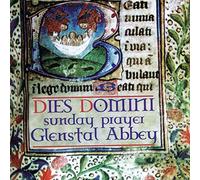 eati
culati
bulant
i lege domini. Beati qui
DIES DOMINI
sunday prayer
Glenstal Abbey